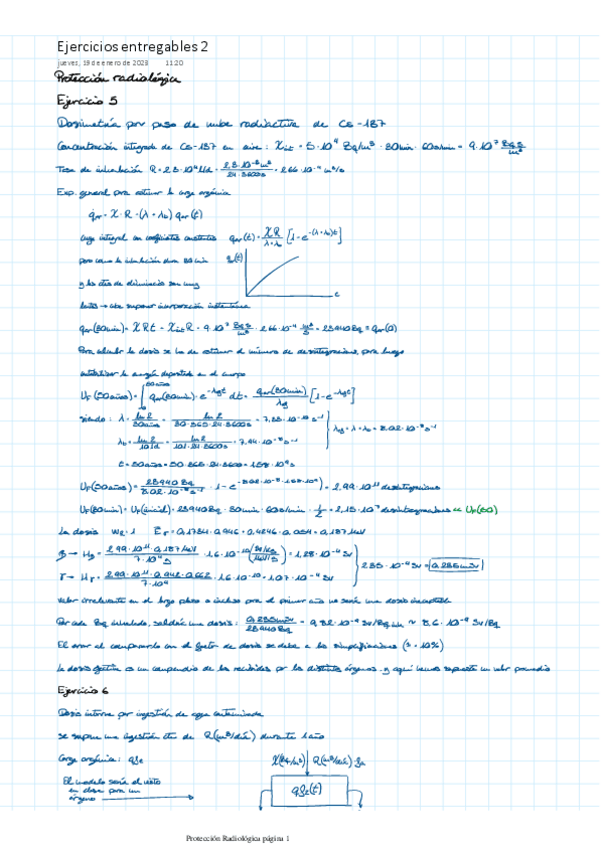 Ejercicios entregables 2
jueves, 19 de enero de 2023 11:20
Protección radiológica
Ejercicio 5
Dosimetría por paso de nube radiactiva de Cs-137
Concentración integrada de Cs-137 en aire: X_int = 5·10⁴ Bq/m³ · 30min · 60s/min = 9·10⁷ Bq s/m³
Tasa de inhalación R = 2.3·10⁴ l/d · 10⁻³m³/24·3600s = 2.66·10⁻⁴ m³/s
Exp. general para estimar la carga orgánica
q_or = X·R - (λ + λ_b) q_or(t)
carga integral con coeficientes constantes q_or(t) = XR/λ+λ_b [1-e^-(λ+λ_b)t]
pero como la inhalación dura 30 min q(t)
y las ctes de eliminación son muy
lentas → cabe suponer incorporación instantánea
t
q_or(30min) = XRt = X_int R = 9·10⁷ Bq s/m³ · 2.66·10⁻⁴ m³/s = 23940 Bq = q_or(0)
Para calcular la dosis se ha de estimar el número de desintegraciones, para luego
la energía depositada en el cuerpo
U_T(50años) = ∫ q_or(30min) · e^-λ_ef t dt = q_or(30min)/λ_ef [1-e^-λ_ef t]
siendo: λ = ln2/30años = ln2/30·365·24·3600s = 7.33·10⁻¹⁰ s⁻¹
λ_ef = λ + λ_b = 8.02·10⁻⁸ s⁻¹
λ_b = ln2/101d = ln2/101·24·3600s = 7.94·10⁻⁸ s⁻¹
t = 50años = 50·365·24·3600 = 1.58·10⁹ s
U_T(50años) = 23940 Bq/8.02·10⁻⁸ s⁻¹ · 1-e^(-8.02·10⁻⁸·1.58·10⁹) = 2.99·10¹¹ desintegraciones
U_T(30min) = U_T(inicial) = 23940 Bq · 30min · 60s/min · 1/2 = 2.15·10⁷ desintegraciones << U_T(50)
La dosis W_R = 1 E_β = 0.1734·0.946 + 0.4246·0.054 = 0.187 MeV
β → H_β = 2.99·10¹¹·0.187 MeV/7·10⁴ g · 1.6·10⁻¹⁰ = 1.28·10⁻⁴ Sv
2.35·10⁻⁴ Sv = 0.235 mSv
γ → H_γ = 2.99·10¹¹·0.942·0.662/7·10⁴ · 1.6·10⁻¹⁰ = 1.07·10⁻⁴ Sv
valor irrelevante en el largo plazo e incluso para el primer año no sería una dosis inaceptable
Por cada Bq inhalado, saldría una dosis: 0.235mSv/23940Bq = 9.82·10⁻⁹ Sv/Bq
El error al compararlo con el factor de dosis se debe a las simplificaciones
La dosis efectiva es un compendio de las recibidas por los distintos órganos y aquí hemos supuesto un valor promedio
Ejercicio 6
Dosis interna por ingestión de agua contaminada
se supone una ingestión cte de R(m³/día) durante 1 año
Carga orgánica:
El modelo sería el visto
en clase para un
órgano
Protección Radiológica página 1